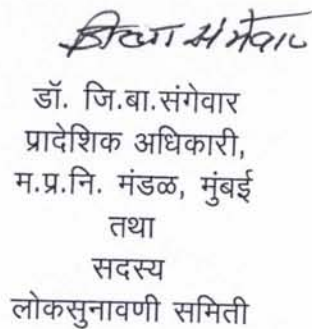 डॉ. जि.बा.संगेवार
प्रादेशिक अधिकारी,
म.प्र.नि. मंडळ, मुंबई
तथा
सदस्य
लोकसुनावणी समिती